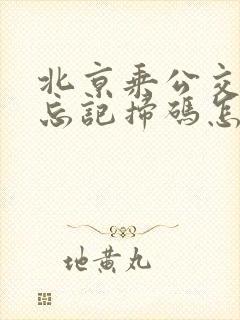 北京乘公交
忘記掃碼怎
地黄丸